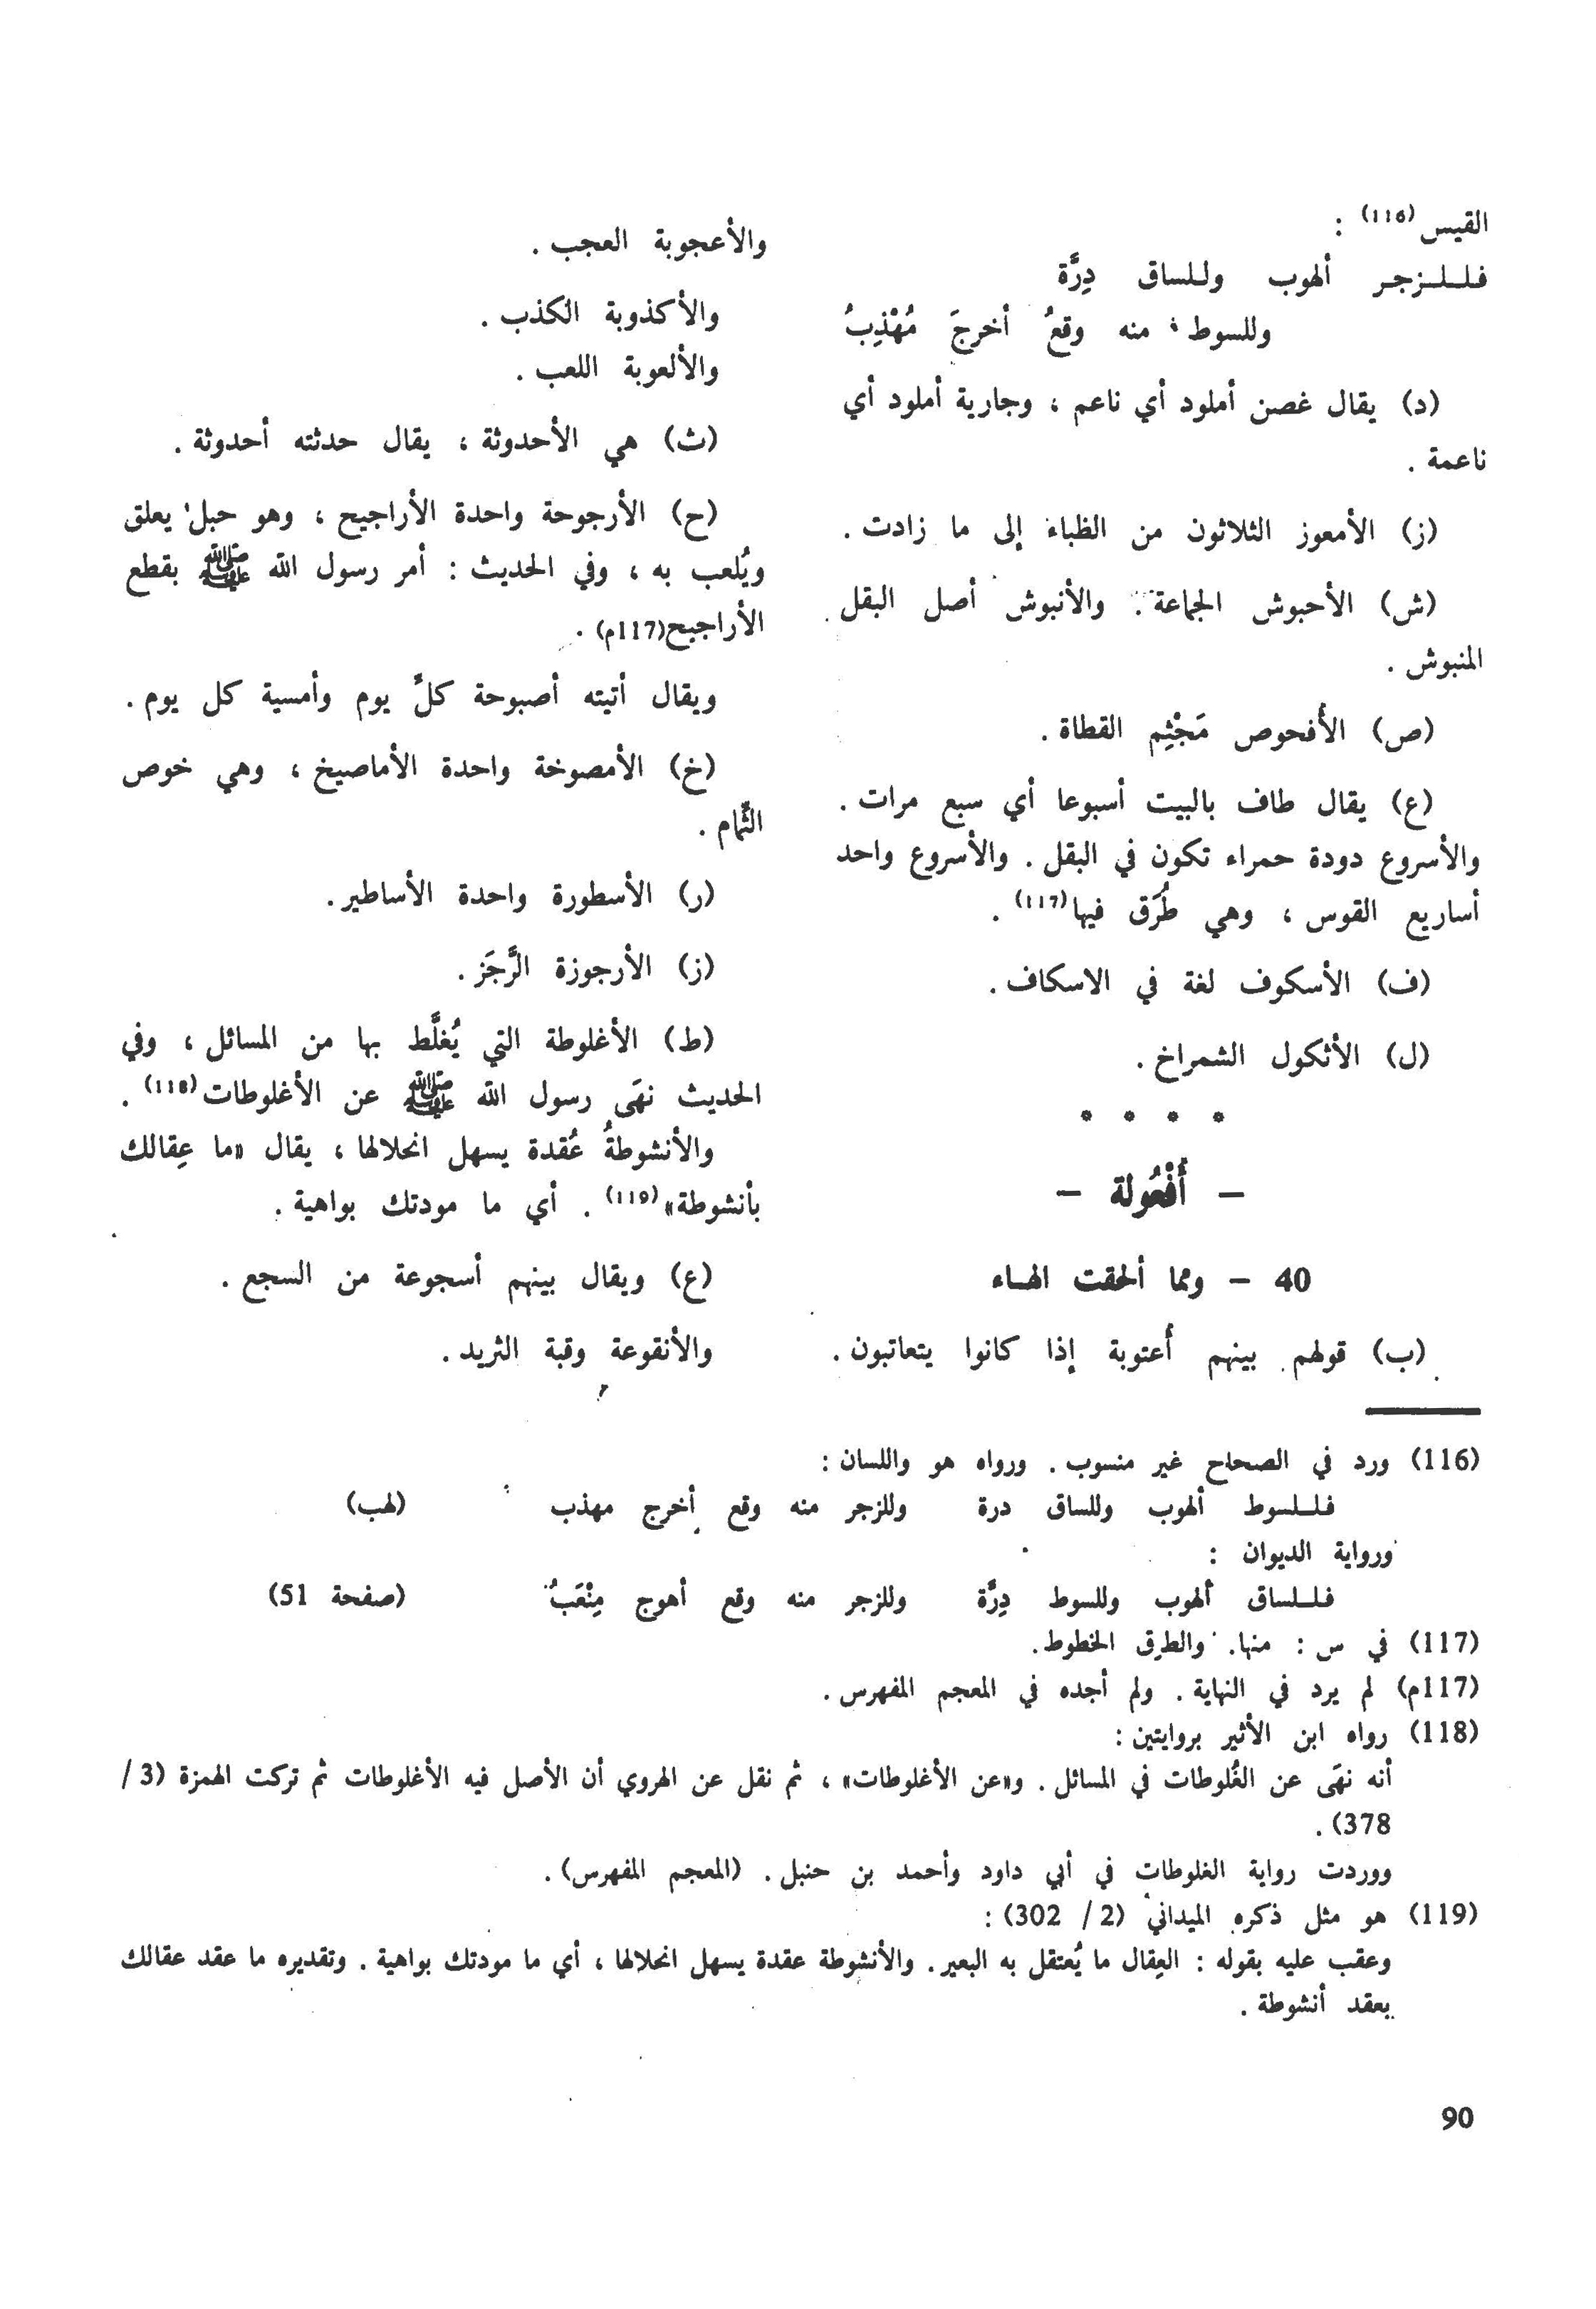 القيس(116) :
فـلـلـزجـر ألهوب ولـلساق دِرَّة
وللسوط منه وقعُ أخرجَ مُهْذِبُ
(د) يقال غصن أملود أي ناعم ، وجارية أملود أي
ناعمة .
(ز) الأمعوز الثلاثون من الظباء إلى ما زادت .
(ش) الأحبوش الجماعة . والأنبوش أصل البقل
المنبوش .
(ص) الأُفحوص مَجْثِم القطاة .
(ع) يقال طاف بالبيت أسبوعا أي سبع مرات .
والأسروع دودة حمراء تكون في البقل . والأسروع واحد
أساريع القوس ، وهي طُرَق فيها(117) .
(ف) الأسكوف لغة في الاسكاف .
(ل) الأثكول الشمراخ .
* * * *
– أُفْعُولة –
40 – ومما ألحقت الهـاء
(ب) قولهم بينهم أُعتوبة إذا كانوا يتعاتبون .
والأعجوبة العجب .
والأكذوبة الكذب .
والألعوبة اللعب .
(ث) هي الأحدوثة ، يقال حدثته أحدوثة .
(ح) الأرجوحة واحدة الأراجيح ، وهو حبل يعلق
ويُلعب به ، وفي الحديث : أمر رسول الله ﷺ بقطع
الأراجيح(117م) .
ويقال أتيته أصبوحة كلَّ يوم وأمسية كل يوم .
(خ) الأمصوخة واحدة الأماصيخ ، وهي خوص
الثُّمام .
(ر) الأسطورة واحدة الأساطير .
(ز) الأرجوزة الرَّجَز .
(ط) الأغلوطة التي يُغلَّط بها من المسائل ، وفي
الحديث نهَى رسول الله ﷺ عن الأغلوطات(118) .
والأنشوطةُ عُقدة يسهل انحلالها ، يقال «ما عِقالك
بأنشوطة»(119) . أي ما مودتك بواهية .
(ع) ويقال بينهم أسجوعة من السجع .
والأنقوعة وقبة الثريد .
(116) ورد في الصحاح غير منسوب . ورواه هو واللسان :
فـلـلسوط ألهوب وللساق درة وللزجر منه وقع أخرج مهذب (لهب)
ورواية الديوان :
فـلـلساق ألهوب وللسوط دِرَّة وللزجر منه وقع أهوج مِنْعَبُ (صفحة 51)
(117) في س : منها . والطرق الخطوط .
(117م) لم يرد في النهاية . ولم أجده في المعجم المفهرس .
(118) رواه ابن الأثير بروايتين :
أنه نهَى عن الغُلوطات في المسائل . و«عن الأغلوطات» ، ثم نقل عن الهروي أن الأصل فيه الأغلوطات ثم تركت الهمزة (3 /
378) .
ووردت رواية الغلوطات في أبي داود وأحمد بن حنبل . (المعجم المفهرس) .
(119) هو مثل ذكره الميداني (2 / 302) :
وعقب عليه بقوله : العِقال ما يُعتقل به البعير . والأنشوطة عقدة يسهل انحلالها ، أي ما مودتك بواهية . وتقديره ما عقد عقالك
بعقد أنشوطة .
90